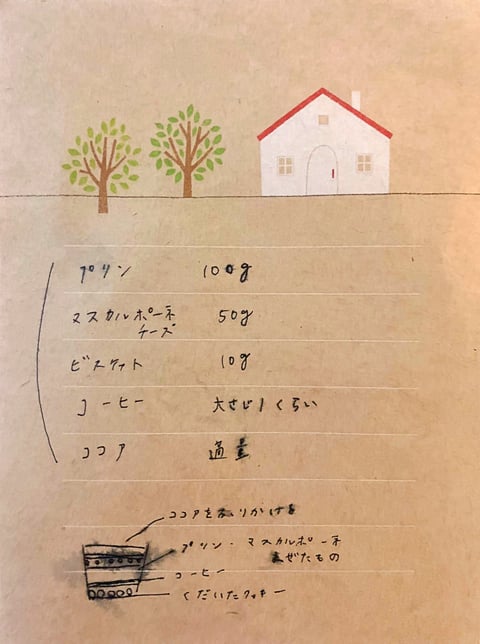 プリン 100g
マスカルポーネ 50g
チーズ
ビスケット 10g
コーヒー 大さじ1くらい
ココア 適量
ココアをふりかける
プリン・マスカルポーネ
まぜたもの
コーヒー
くだいたクッキー